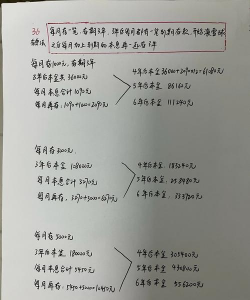 36
存款法
每月存一笔，存期3年，3年后每月都有一笔到期存款，开始滚雪球
之后每月加上到期的本息再一起存3年
每月存1000元，存期3年
3年本金共36000元
每月本息合计1090元
每月再存：1090+1000=2090元
4年后本金
5年后本金 86160元
6年后本金 111240元
每月存3000元
3年后本金 108000元
每月本息合计3270元
每月再存：3270+3000=6270元
4年后本金 183240元
5年后本金 258480元
6年后本金 333720元
每月存5000元
3年后本金 180000元
每月本息5450元
每月再存：5450+5000=10450元
4年后本金 305400元
5年后本金 430800元
6年后本金 556200元